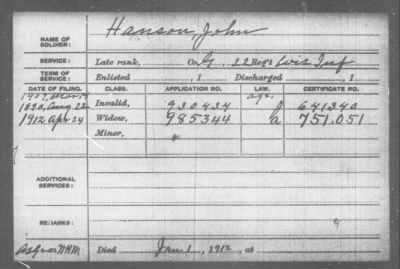 NAME OF SOLDIER: Hanson, John
SERVICE: Late rank, Co. G. 22 Reg't Wis Inf
TERM OF SERVICE: Enlisted , 1 Discharged , 1
DATE OF FILING. CLASS. APPLICATION NO. LAW. CERTIFICATE NO.
1907, Mar age.
1890, Aug 22 Invalid, 930.434 641340
1912 Apr 24 Widow, 985344 a 751.051
Minor,
ADDITIONAL SERVICES:
REMARKS:
Died Jan 1, 1912, at